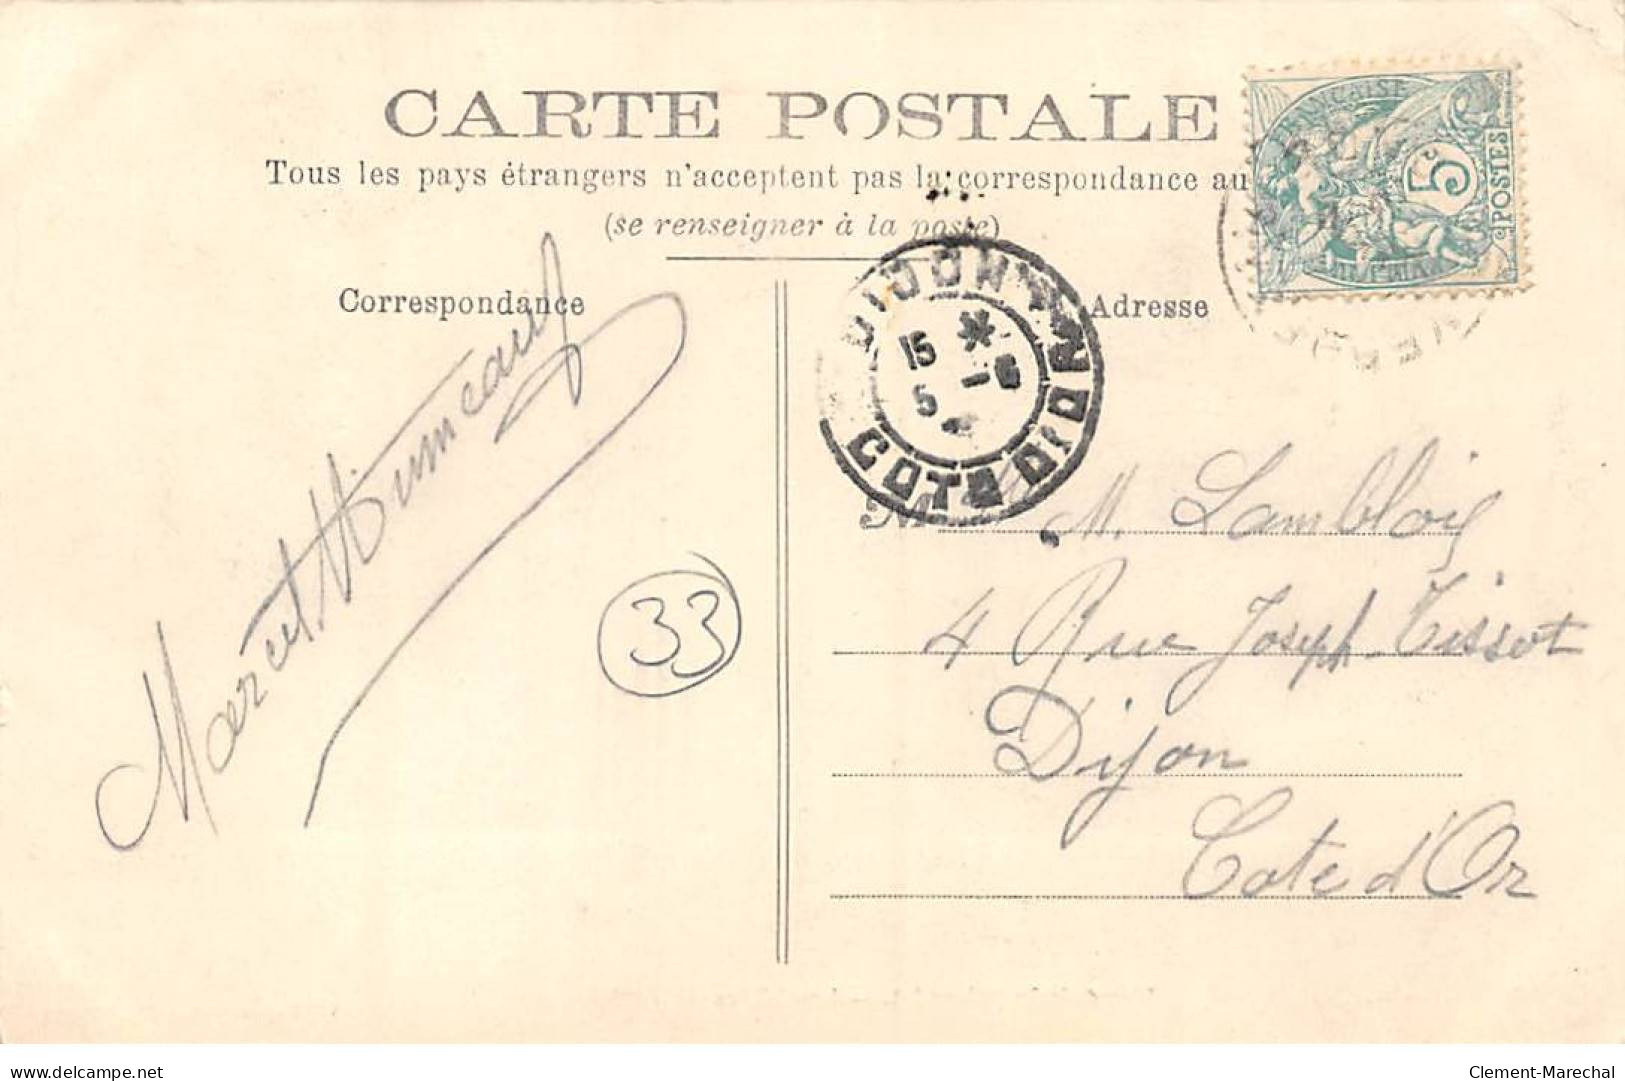 CARTE POSTALE
Tous les pays étrangers n'acceptent pas la correspondance au
(se renseigner à la poste)
Correspondance
Adresse
FRANÇAISE
5c
POSTES
DIJON
15 * 
5 -6
COTE D'OR
Marcel
33
M. Lamblois
4 Rue Joseph-Tissot
Dijon
Cote d'Or
delcampe.net
Clement-Marechal